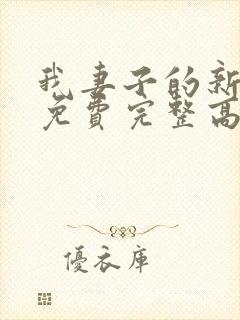 我妻子的新
免費完整高
優衣庫